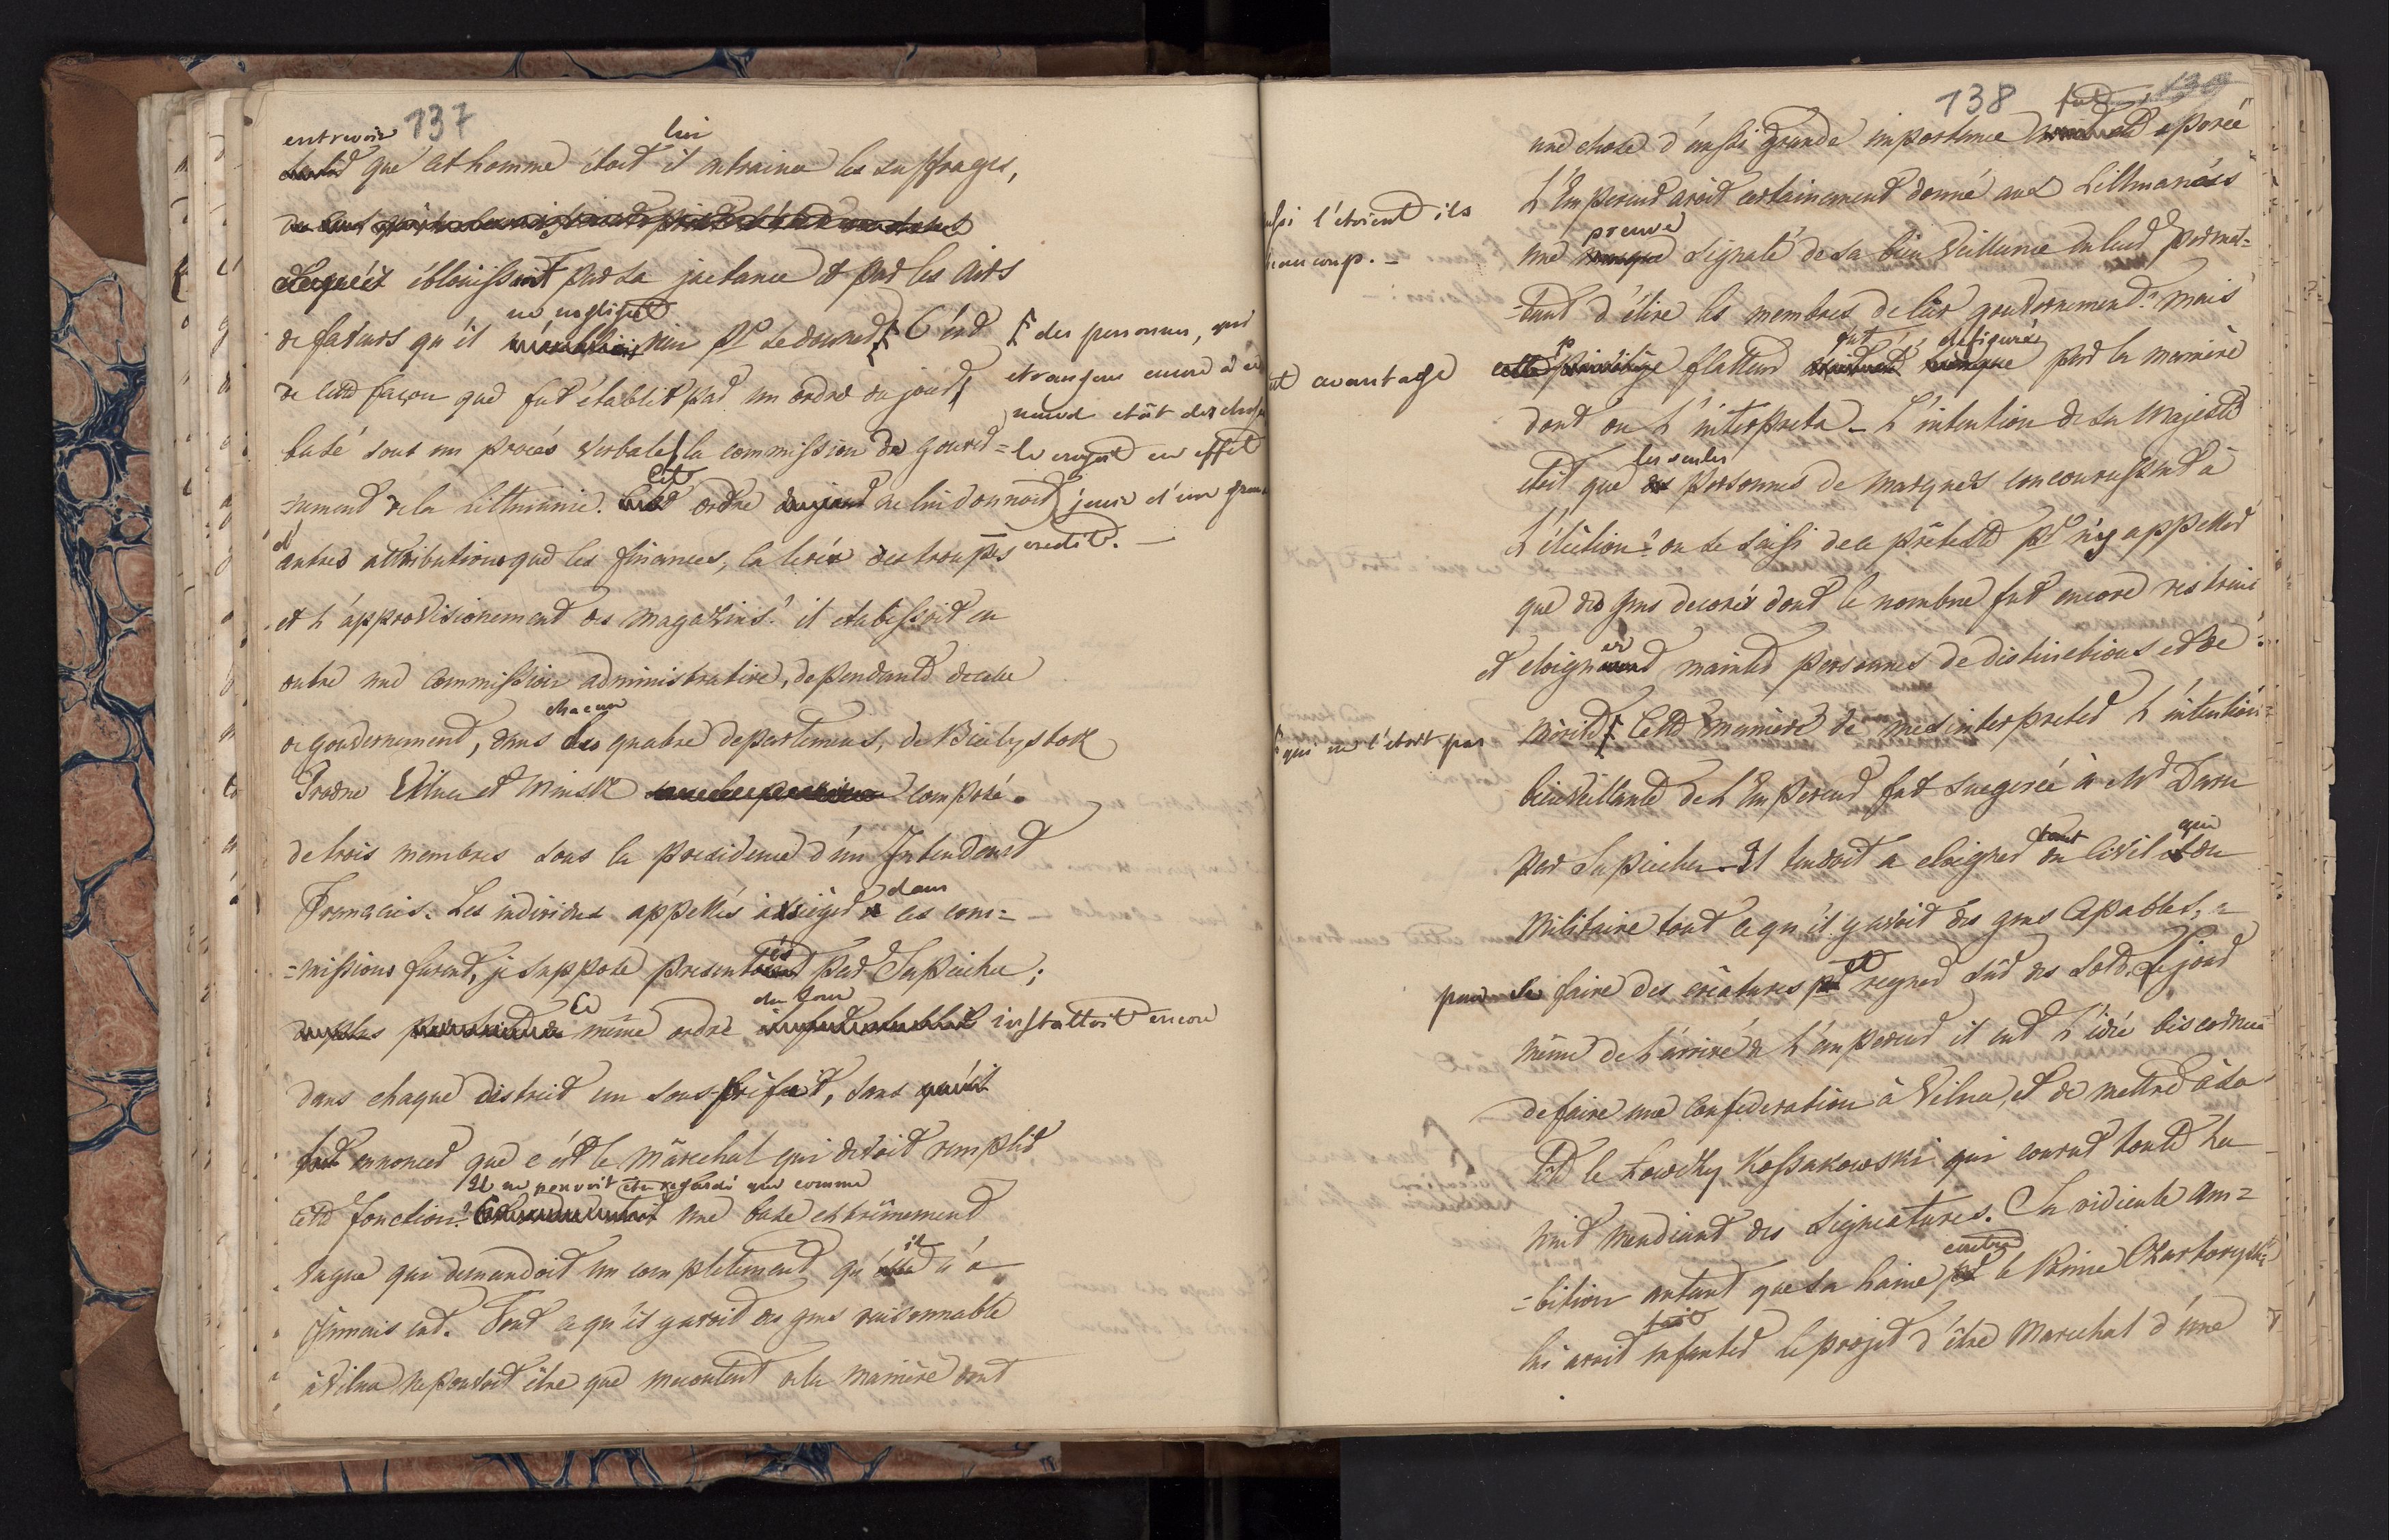 137
entrevoir
que cet homme étoit il entrainea les suffrages,
lui
éblouissoit par sa jactance et par les airs
de faveurs qu'il rien pr se donner C'est
ne negligeoit
des personnes, qui
de cette façon que fut établit par un ordre du jour
etrangers encore à ce
basé sous un procès verbale la commission de gouver=
nouvel etât des choses
le croyoit en effet
=nement de la Lithuanie. ordre ne lui donnoit
Cet
jouir d'un grand
d'autres attributions que les finances, la levée des troupes
credit. —
et l'approvisionement des magazins. il etabissoit en
outre une commission administrative, dependante de celle
de gouvernement, dans quatre departemens, de Bialystok
chacun
Grodno Vilna et Minsk composé
de trois membres sous la presidence d'un Intendent
Français. Les individus appellés à siéger ces com=
dans
=missions furent, je suppose presentés par Sapieha;
même ordre installoit encore
Ce
du jour
dans chaque district un sous-préfect, sans
annoncer que c'est le maréchal qui devoit remplir
cette fonction. une base extrêmement
Il ne pouvoit etre regardé que comme
vague qui demandoit un completement qu' n'a
il
jamais eut. Tout ce qu'il y avoit des gens raisonnable
à Vilna ne pouvoit être que mecontent de la manière dont
138
une chose d'aussi grande importance operée
fut
aussi l'étoient ils
beaucoup. —
L'Empereur avoit certainement donné aux Lithuaniens
une signalé de sa bien veillance en leur permet=
preuve
=tant d'élire les membres de leur gouvernement. mais
cet avantage
flatteur par la manière
fut
defiguré
dont on l'interpreta — L'intention de Sa Majesté
étoit que personnes de marques concourussent à
les seules
l'élection. on se saisi de ce prétexte pr n'y appeller
que des gens decorés dont le nombre fut encore restreint
et eloigner maintes personnes de distinctions et de
mérite Cette manière de mesinterpreter l'intention
qui ne l'etoit pas
bienveillante de l'Empereur fut suegerée à Mr Daru
par Sapieha. Il tendoit a eloigner du civil du
tant
que
militaire tout ce qu'il y avoit des gens capables,
pour se faire des créatures regner sur des sots. Le jour
et
même de l'arrivé de l'empereur il eut l'idée biscornue
de faire une confederation à Vilna, et de mettre à sa
tête le Lowczy Kossakowski qui courut toute la
nuit mendiant des signatures. Sa ridicule am=
=bition autant que sa haine le Prince Czartoryski
contre
lui avoit enfanter le projet d'être marechal d'une
fait